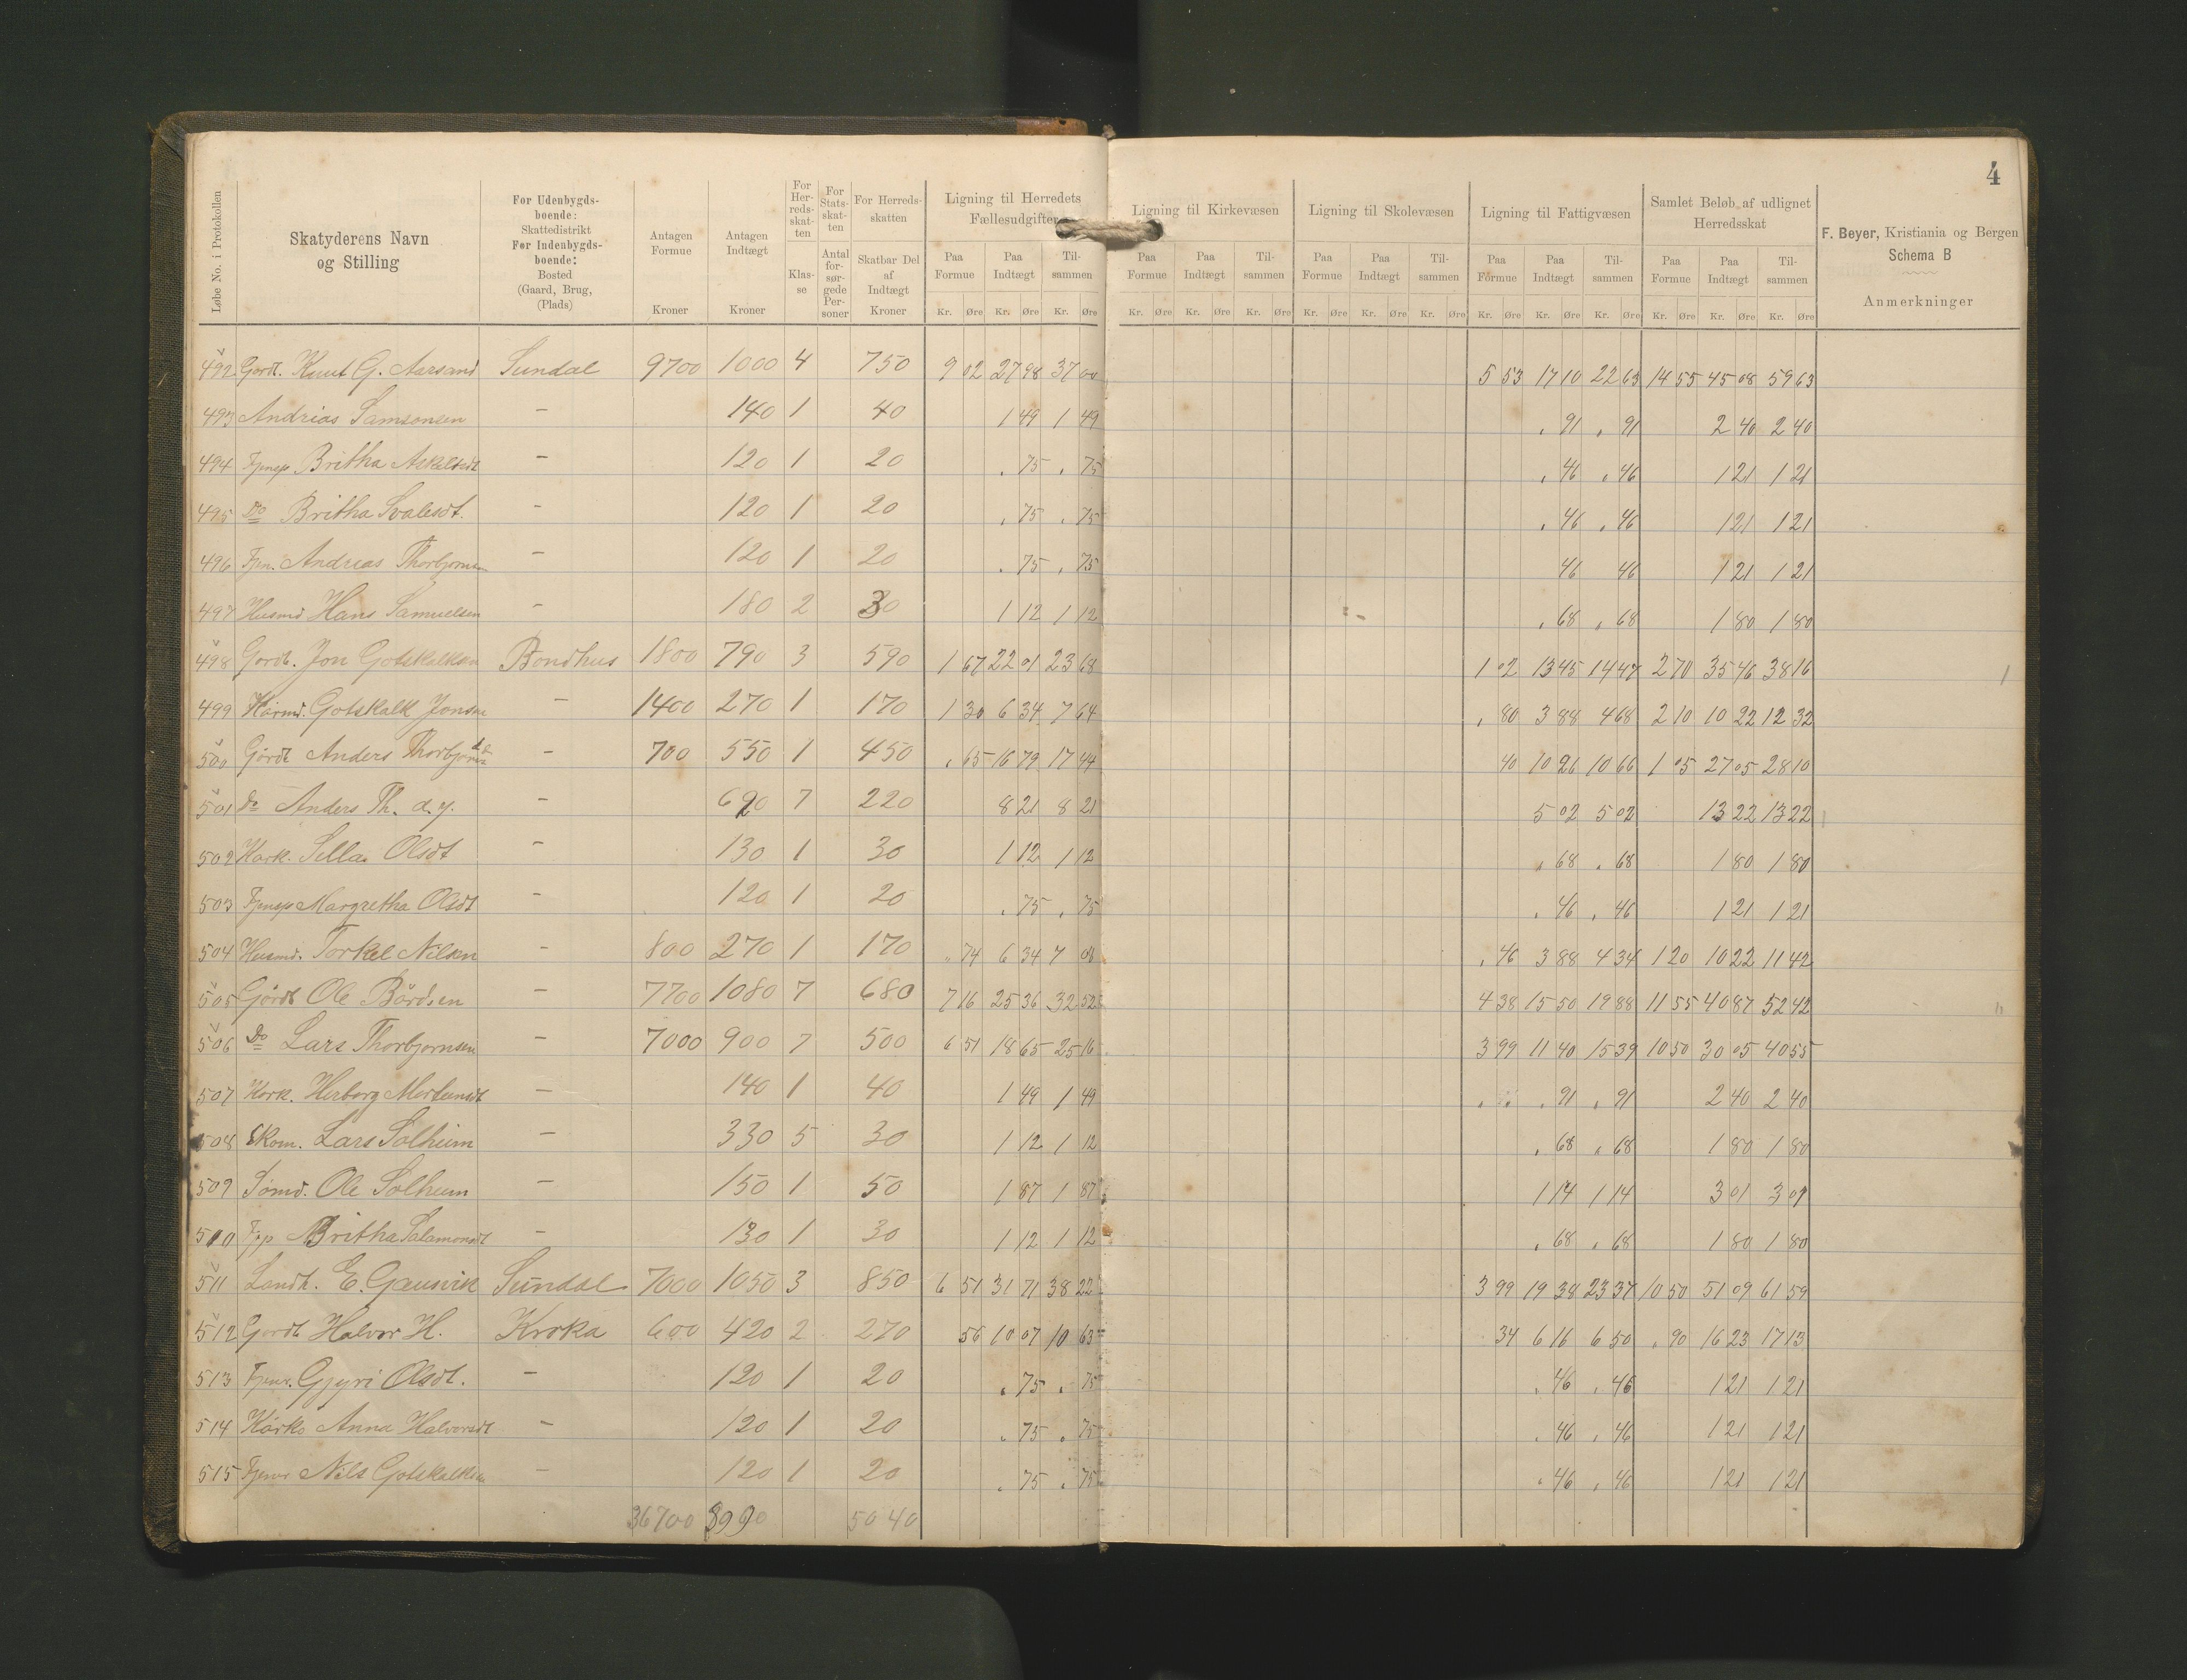 4
Løbe No. i Protokollen
Skatyderens Navn og Stilling
For Udenbygdsboende: Skattedistrikt For Indenbygdsboende: Bosted (Gaard, Brug, (Plads)
Antagen Formue Kroner
Antagen Indtægt Kroner
For Herredsskatten Klasse
For Statsskatten Antal forsørgede Personer
For Herredsskatten Skatbar Del af Indtægt Kroner
Ligning til Herredets Fællesudgifter
Ligning til Kirkevæsen
Ligning til Skolevæsen
Ligning til Fattigvæsen
Samlet Beløb af udlignet Herredsskat
F. Beyer, Kristiania og Bergen
Schema B
Anmerkninger
Paa Formue Paa Indtægt Tilsammen Paa Formue Paa Indtægt Tilsammen Paa Formue Paa Indtægt Tilsammen Paa Formue Paa Indtægt Tilsammen Paa Formue Paa Indtægt Tilsammen
Kr. Øre Kr. Øre Kr. Øre Kr. Øre Kr. Øre Kr. Øre Kr. Øre Kr. Øre Kr. Øre Kr. Øre Kr. Øre Kr. Øre Kr. Øre Kr. Øre Kr. Øre
492 Gardt. Knut G. Aarsand Sundal 9700 1000 4 750 9 02 27 98 37 00 5 53 17 10 22 63 14 55 45 08 59 63
493 Andrias Samsonsen - 140 1 40 1 49 1 49 . 91 . 91 2 40 2 40
494 Tjensp. Britha Askelsdt - 120 1 20 . 75 . 75 . 46 . 46 1 21 1 21
495 Do Britha Svalesdt. - 120 1 20 . 75 . 75 . 46 . 46 1 21 1 21
496 Tjen. Andreas Thorbjornsen - 120 1 20 . 75 . 75 46 46 1 21 1 21
497 Husmd Hans Samuelsen - 180 2 30 1 12 1 12 . 68 . 68 1 80 1 80
498 Gardb. Jon Gotskalksen Bondhus 1800 790 3 590 1 67 22 01 23 68 1 02 13 45 14 47 2 70 35 46 38 16
499 Kårmd. Gotskalk Jonsen - 1400 270 1 170 1 30 6 34 7 64 . 80 3 88 4 68 2 10 10 22 12 32
500 Gårdt Anders Thorbjorns d e - 700 550 1 450 . 65 16 79 17 44 40 10 26 10 66 1 05 27 05 28 10
501 Do Anders Th. d. y. - 620 7 220 8 21 8 21 5 02 5 02 13 22 13 22
502 Kark. Sella Olsdt - 130 1 30 1 12 1 12 . 68 . 68 1 80 1 80
503 Tjensp Margretha Olsdt - 120 1 20 . 75 . 75 . 46 . 46 1 21 1 21
504 Husmd. Torkel Nilsen - 800 270 1 170 . 74 6 34 7 08 . 46 3 88 4 34 1 20 10 22 11 42
505 Gårdb Ole Bårdsen - 7700 1080 7 680 7 16 25 36 32 52 4 38 15 50 19 88 11 55 40 87 52 42
506 Do Lars Thorbjornsen - 7000 900 7 500 6 51 18 65 25 16 3 99 11 40 15 39 10 50 30 05 40 55
507 Kark. Herborg Mortensdt - 140 1 40 1 49 1 49 . 91 . 91 2 40 2 40
508 Skom. Lars Solheim - 330 5 30 1 12 1 12 . 68 . 68 1 80 1 80
509 Tømd. Ole Solheim - 150 1 50 1 87 1 87 1 14 1 14 3 01 3 01
510 Tjp Britha Salamonsdt - 130 1 30 1 12 1 12 . 68 . 68 1 80 1 80
511 Landh. E. Gausvik Sundal 7000 1050 3 850 6 51 31 71 38 22 3 99 19 38 23 37 10 50 51 09 61 59
512 Gardb Halvor H. Kroka 600 420 2 270 56 10 07 10 63 34 6 16 6 50 . 90 16 23 17 13
513 Tjenr. Gjyri Olsdt. - 120 1 20 . 75 . 75 . 46 . 46 1 21 1 21
514 Kårk. Anna Halvorsdt - 120 1 20 . 75 . 75 . 46 . 46 1 21 1 21
515 Tjenr Nils Gotskalksen - 120 1 20 . 75 . 75 . 46 . 46 1 21 1 21
36700 8990 5040